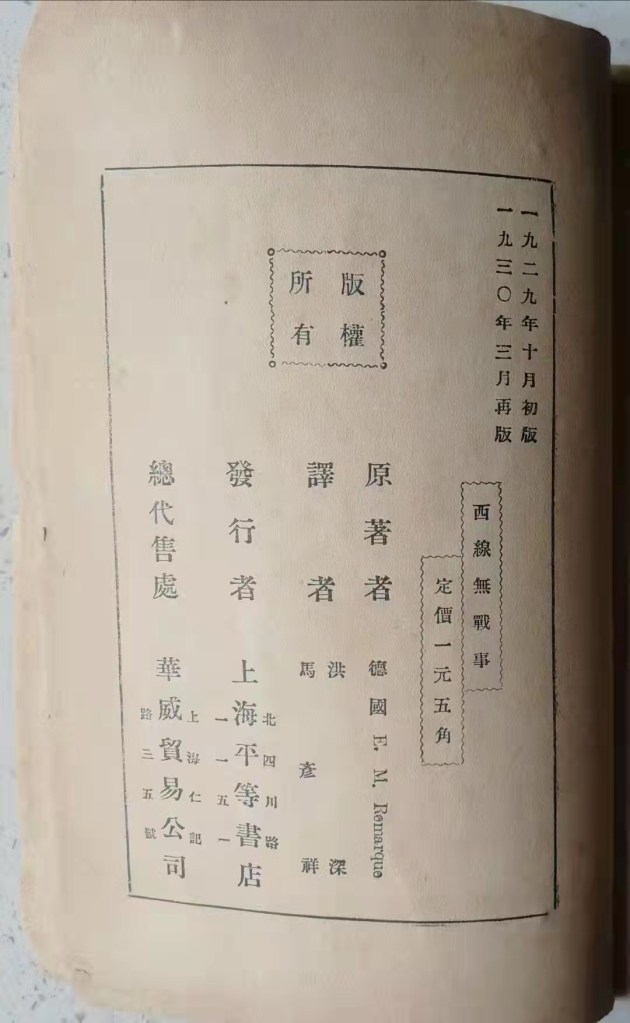 一九二九年十月初版
一九三〇年三月再版
西線無戰事
定價一元五角
版權
所有
原著者 德國 E. M. Remarque
譯者 洪深
馬彥祥
發行者 上海平等書店
北四川路
一一五一
總代售處 華威貿易公司
上海仁記
路三五號